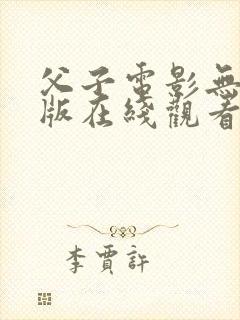 父子電影無
版在綫觀看
李賈許